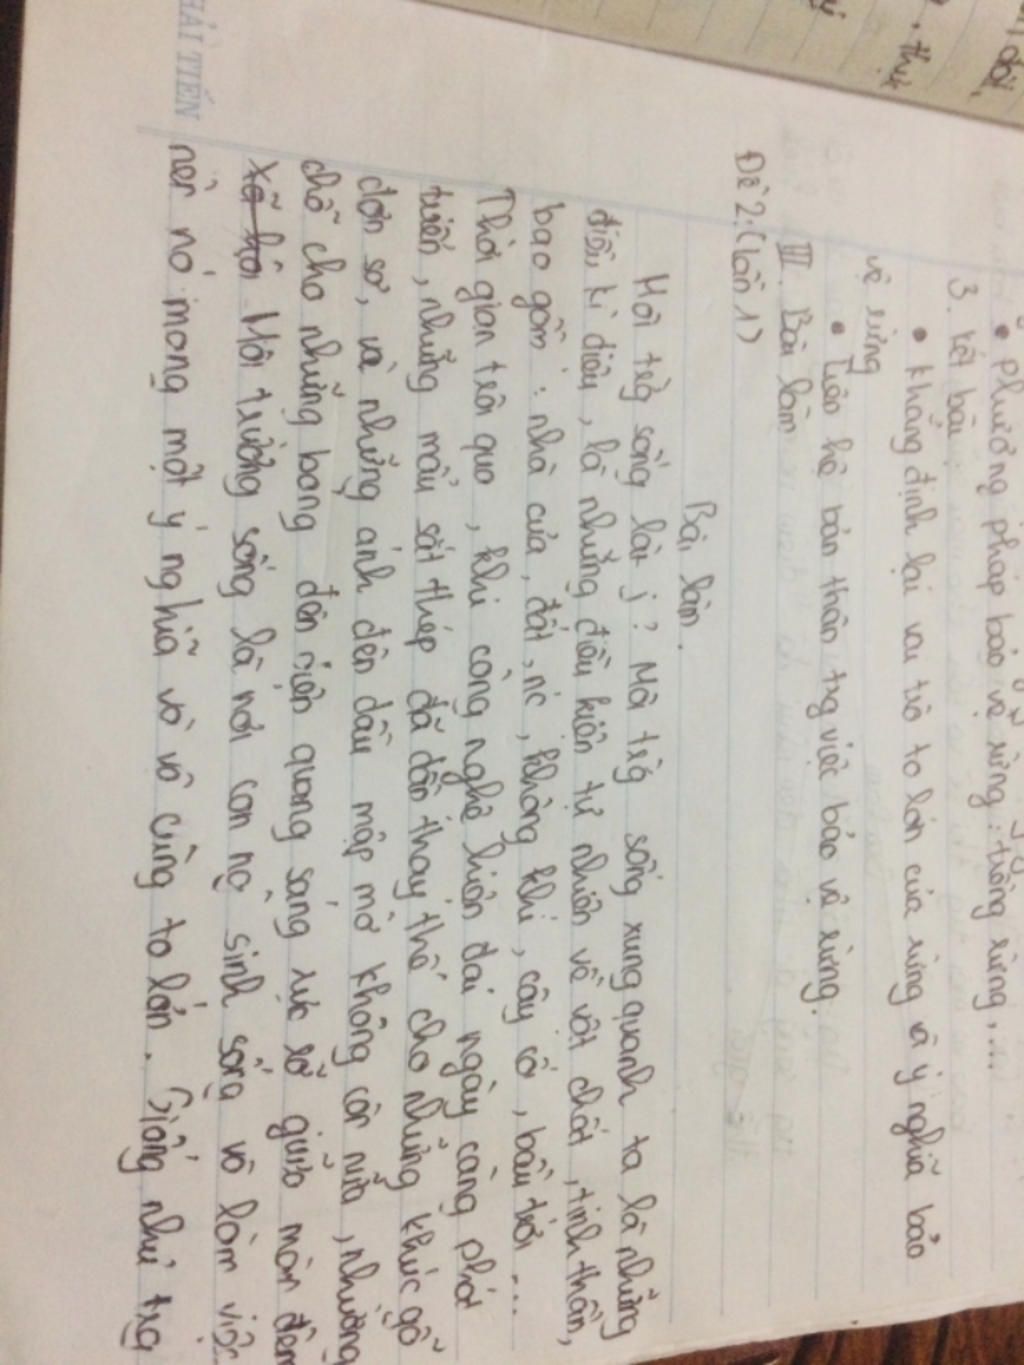 dài,
. thịt
• phương pháp bảo vệ rừng: trồng rừng,...
3. kết bài
• khẳng định lại vai trò to lớn của rừng và ý nghĩa bảo
vệ rừng
• Liên hệ bản thân trg việc bảo vệ rừng.
III. Bài làm
Đề 2: (lần 1)
Bài làm.
Môi trg sống là j? Môi trg sống xung quanh ta là những
điều kì diệu, là những điều kiện tự nhiên về vật chất, tinh thần,
bao gồm: nhà cửa, đất, nc, không khí, cây cối, bầu trời...
Thời gian trôi qua, khi công nghệ hiện đại ngày càng phát
triển, những mẩu sắt thép đã dần thay thế cho những khúc gỗ
đơn sơ, và những ánh đèn dầu mập mờ không còn nữa, nhường
chỗ cho những bóng đèn điện quang sáng rực rỡ giữa màn đêm
Môi trường sống là nơi con ng sinh sống và làm việc
nên nó mang một ý nghĩa vô cùng to lớn. Giống như trg
HẢI TIẾN